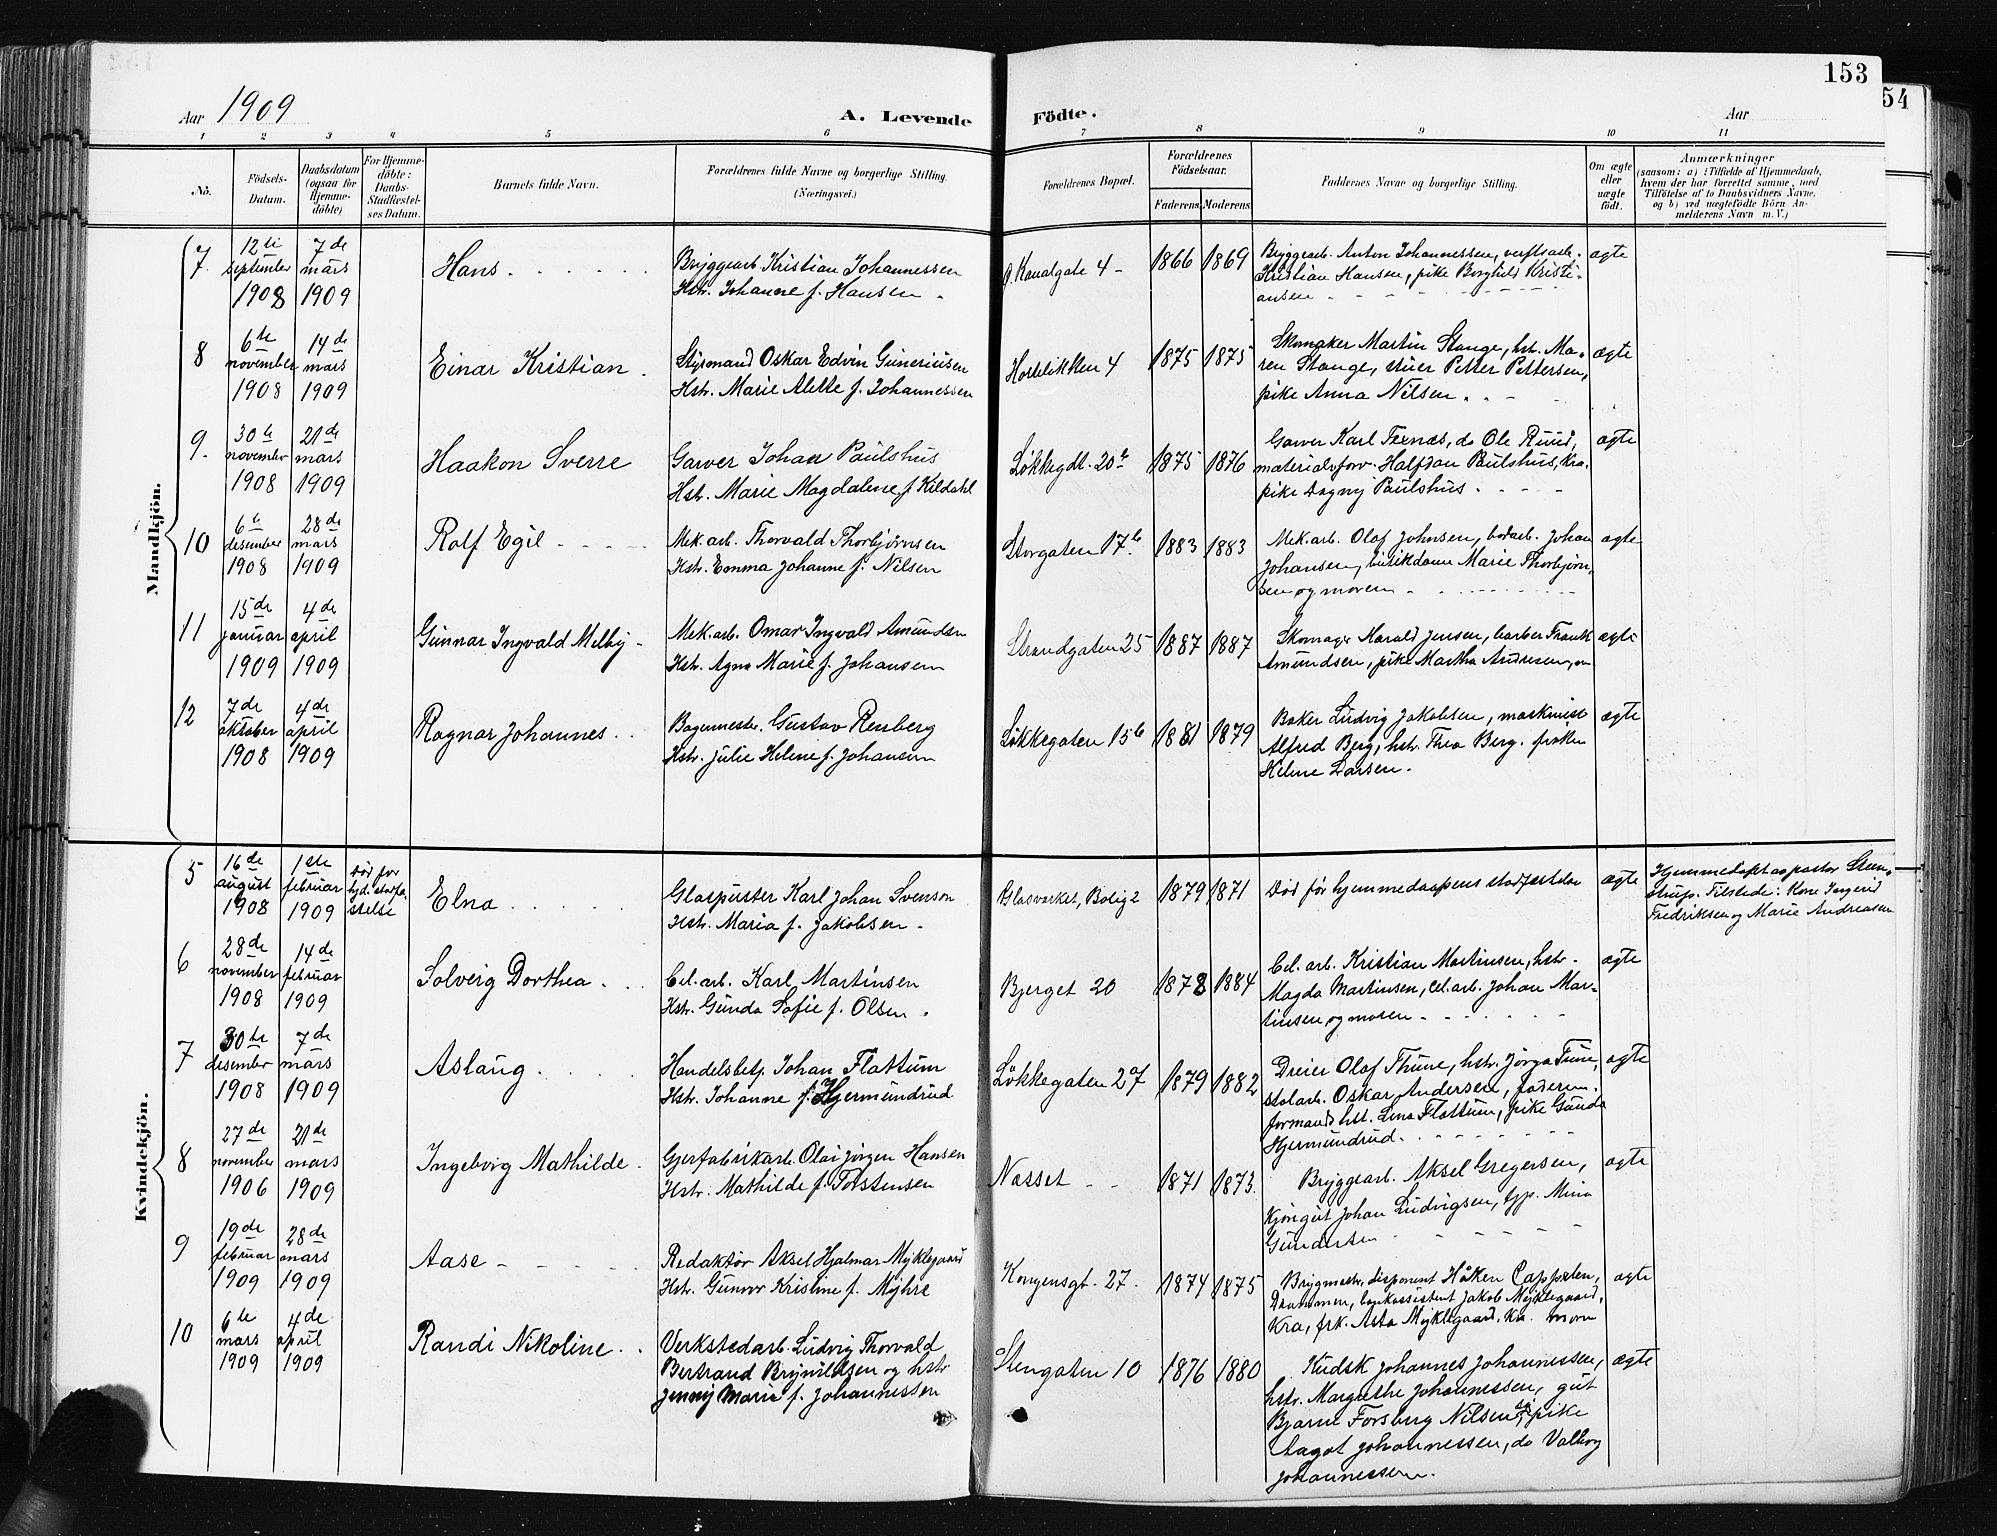 153
54
Aar 1909
A. Levende Födte.
Aar
1 2 3 4 5 6 7 8 9 10 11
No.
Födsels-
Datum.
Daabsdatum
(ogsaa for
Hjemme-
döbte)
For Hjemme-
döbte:
Daabs-
Stadfæstel-
ses Datum.
Barnets fulde Navn.
Forældrenes fulde Navne og borgerlige Stilling.
(Næringsvei.)
Forældrenes Bopæl.
Forældrenes
Födselsaar.
Faderens. Moderens.
Faddernes Navne og borgerlige Stilling.
Om ægte
eller
uægte
födt.
Anmærkninger
(saasom: a) i Tilfælde af Hjemmedaab,
hvem der har forrettet samme, med
Tilföielse af to Daabsvidners Navne.
og b) ved uægtefödte Börn An-
melderens Navn m. V.)
Mandkjön.
7.
12te
september
1908
7de
mars
1909
Hans
Bryggearb. Kristian Johannessen
Hstr. Johanne f. Hansen
Kanalgate 4
1866 1869
Bryggearb. Anton Johannessen, verftsarb.
Kristian Hansen, pike Borghild Kristi-
ansen
ægte
8
6te
november
1908
14de
mars
1909
Einar Kristian
Styrmand Oskar Edvin Guneriusen
Hstr. Marie Alette f. Johannessen
4
1875 1875
Skomaker Martin Stange, hst. Ma-
ren Stange, stuer Petter Pettersen,
pike Anna Nilsen
ægte
9.
30te
november
1908
21de
mars
1909
Haakon Sverre
Garver Johan Paulshus
Hstr. Marie Magdalene f. Kildahl
Løkkegdt. 20b
1875 1876
Garver Karl Texnæs, do Ole Ruud,
materialforv. Halfdan Paulshus, Kra.
pike Dagny Paulshus
ægte
10
6te
desember
1908
28de
mars
1909
Rolf Egil
Mek. arb. Thorvald Thorbjørnsen
Hstr. Emma Johanne f. Nilsen
Storgaten 17b
1883 1883
Mek. arb. Olaf Johnsen, bodarb. Johan
Johansen, butikdame Marie Thorbjørn-
sen og moren
ægte
11
15de
januar
1909
4de
april
1909
Gunnar Ingvald Melby
Mek. arb. Omar Ingvald Amundsen
Hstr. Agna Marie f. Johansen
Strandgaten 25
1887 1887
Skomager Harald Jensen, barber Frank
Amundsen, pike Martha Andresen,
ægte
12
7de
oktober
1908
4de
april
1909
Ragnar Johannes
Bagermester Gustav Renberg
Hstr. Julie Helene f. Johansen
Løkkegaten 15b
1881 1879
Baker Ludvig Jakobsen, maskinist
Alfred Berg, hstr. Thea Berg, frøken
Helene Larsen.
ægte
Kvindekjön.
5
16de
august
1908
1ste
februar
1909
Død før
hjd. stadfæ-
stelse
Elna
Glaspuster Karl Johan Svenson
Hstr. Maria f. Jakobsen
Glasværket, Bolig 2
1879 1871
Død før hjemmedaapens stadfæstelse
ægte
Hjemmedøpt av pastor Steen-
strup. Tilstede: Kone Ingerid
Fredriksen og Marie Andreasen
6
28de
november
1908
14de
februar
1909
Solveig Dorthea
Cel. arb. Karl Martinsen
Hstr. Gunda Sofie f. Olsen
Bjerget 20
1878 1884
Cel. arb. Kristian Martinsen, hstr.
Magda Martinsen, cel. arb. Johan Mar-
tinsen og moren
ægte
7
30te
desember
1908
7de
mars
1909
Aslaug
Handelsbetj. Johan Flattum
Hstr. Johanne f. Hjermundrud
Løkkegaten 27
1879 1882
Dreier Olaf Thune, hstr. Jørga Tune,
stolarb. Oskar Andersen, faderen.
formands hst. Lena Flattum, pike Gunda
Hjermundrud.
ægte
8
27de
november
1906
21de
mars
1909
Ingeborg Mathilde
Gjærfabrikarb. Olai Jørgen Hansen
Hstr. Mathilde f. Torstensen
Næsset
1871 1873.
Bryggearb. Aksel Gregersen,
Kjøregut Johan Ludvigsen, tjp. Mina
Gundersen
ægte
9
19de
februar
1909
28de
mars
1909
Aase
Redaktør Aksel Hjalmar Myklegaard
Hstr. Gunvor Kristine f. Myhre
Kongensgt. 27.
1874 1875
Brygmestr. disponent Håken Cappelen,
Drammen, bankassistent Jakob Myklegaard,
Kra, frk. Asta Myklegaard, Kra. moren
ægte
10
6te
mars
1909
4de
april
1909
Randi Nikoline
Verkstedarb. Ludvig Thorvald
Bertrand Brynildsen og hstr
Jenny Marie f. Johannessen
Stengaten 10
1876 1880
Kudsk Johannes Johannessen,
hstr. Margrethe Johannessen, gut
Bjarne Forsberg Nilsen, pike
Aagot Johannessen, do Valborg
Johannessen.
ægte